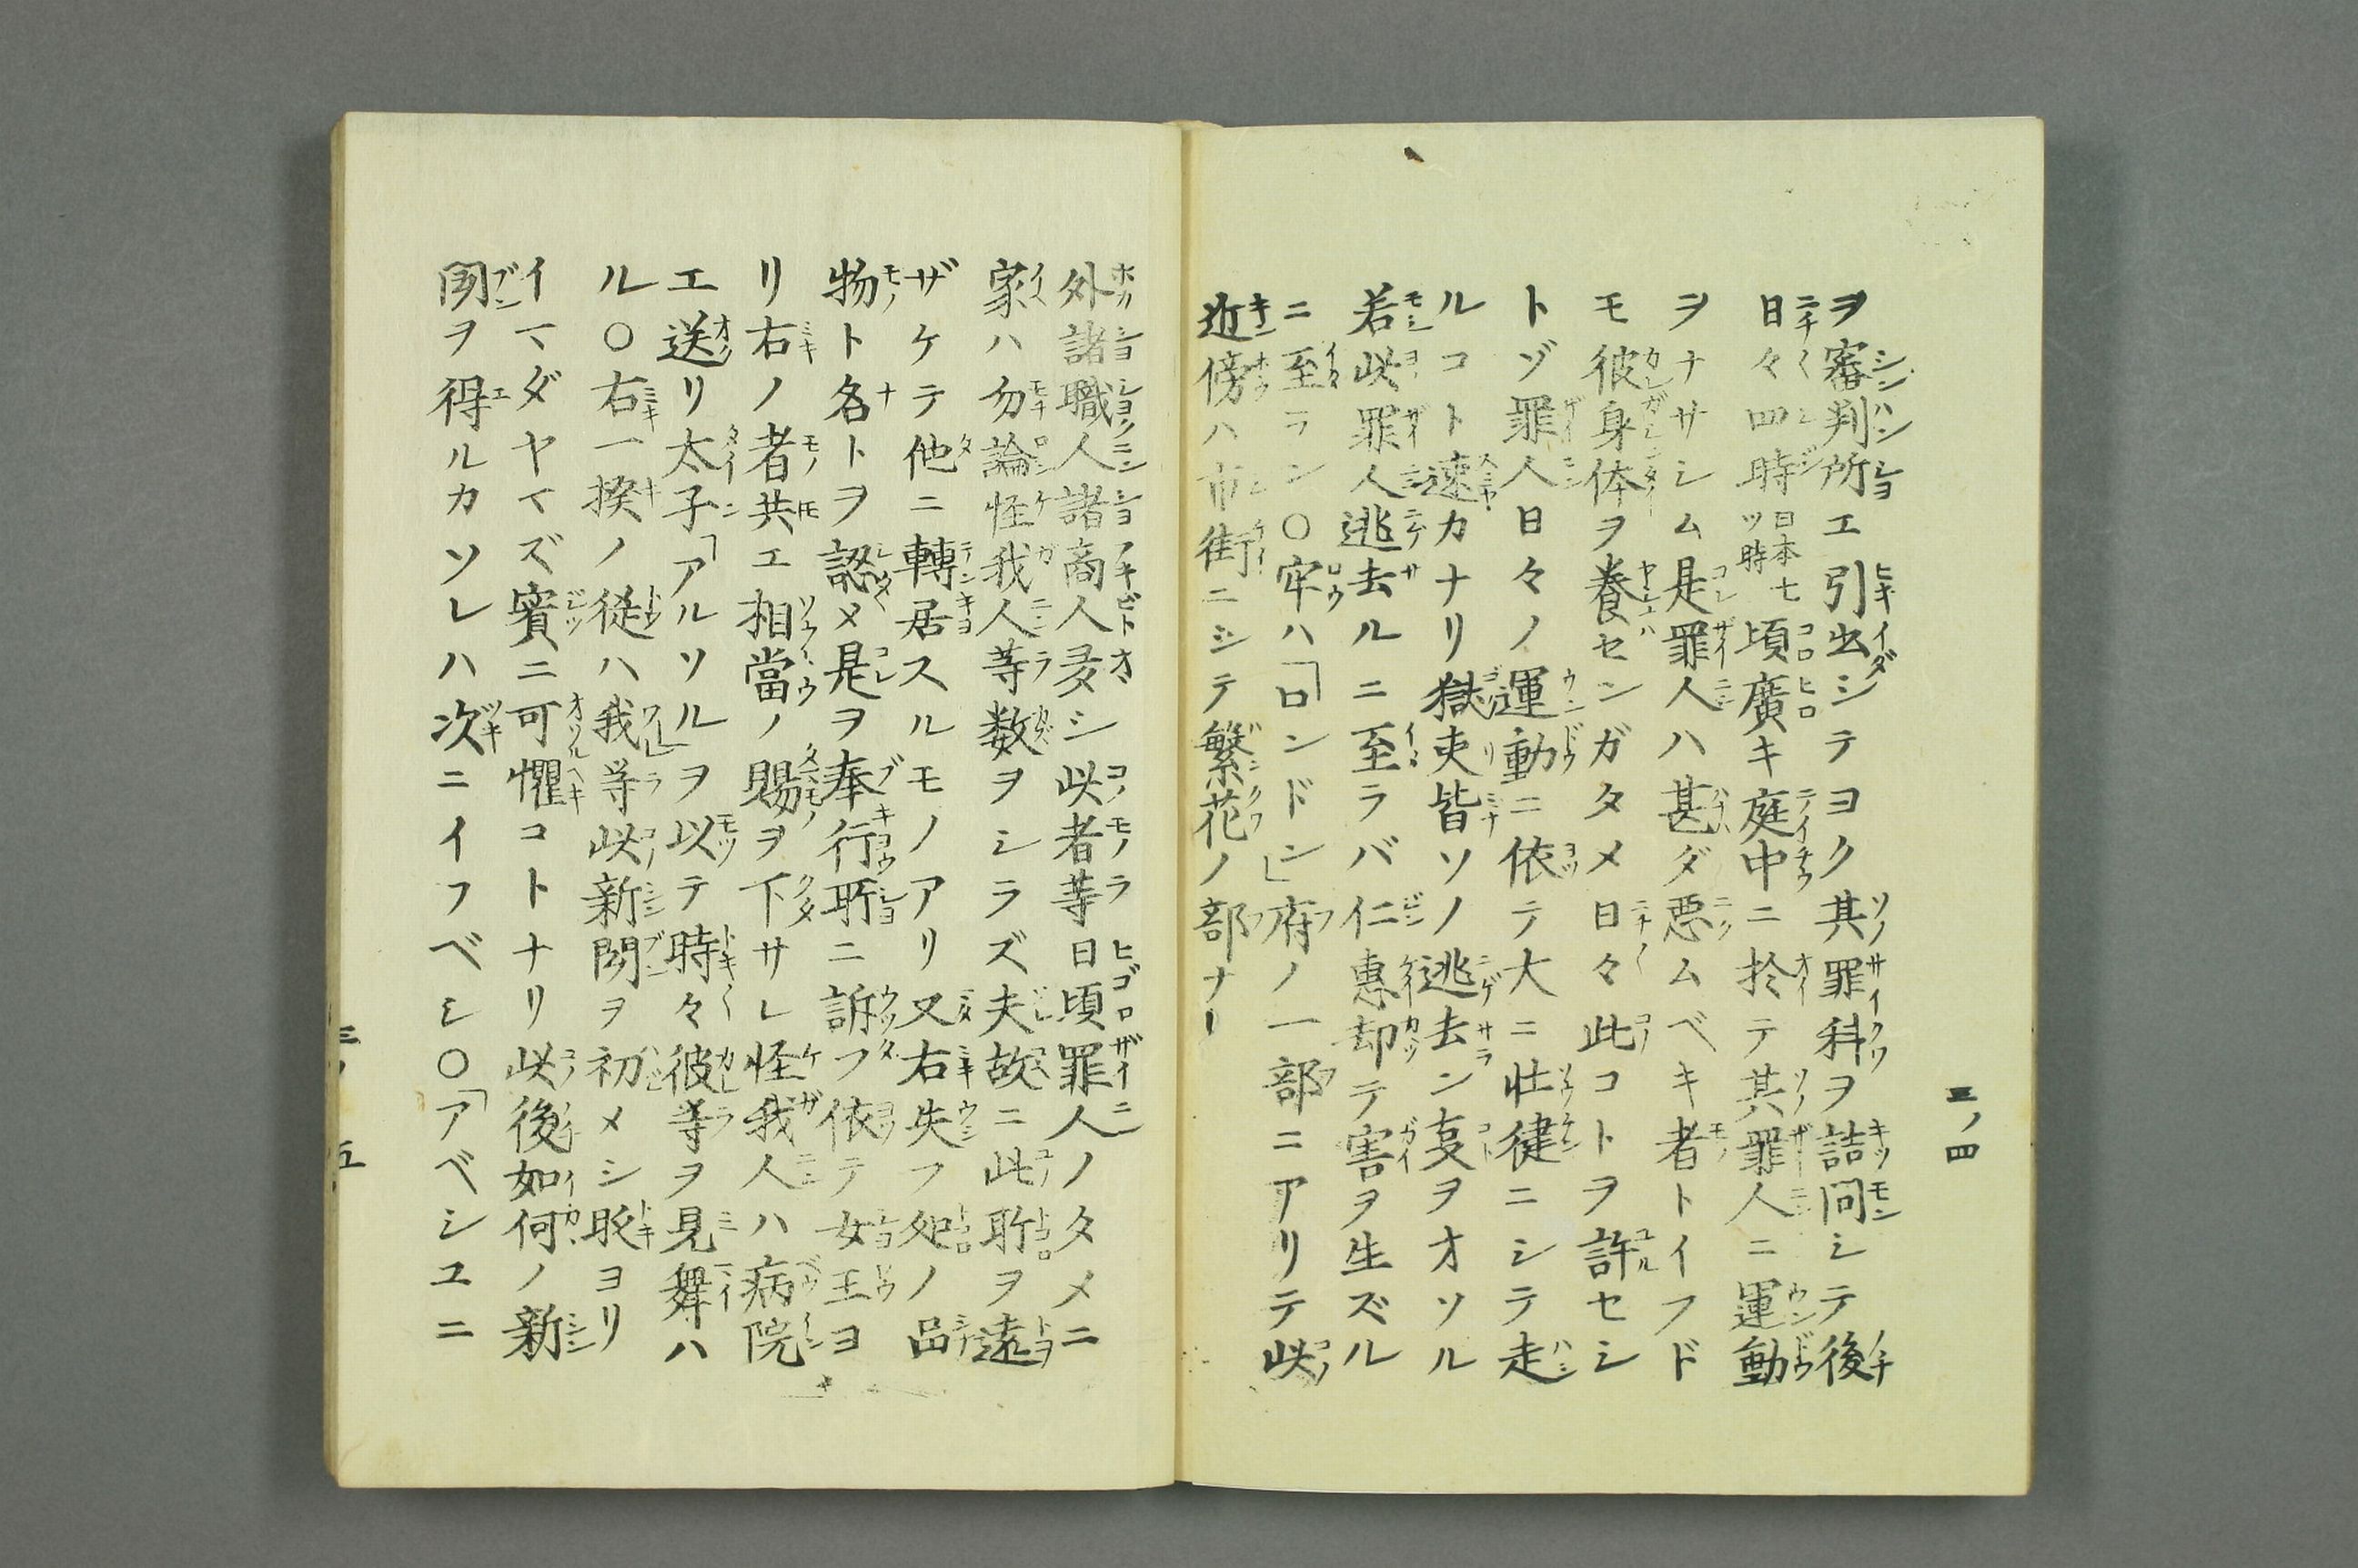 三ノ四
ヲ審判所エ引出シテヨク其罪科ヲ詰問シテ後
日々四時日本七ツ時頃廣キ庭中ニ於テ其罪人ニ運動
ヲナサシム是罪人ハ甚ダ悪ムベキ者トイフド
モ彼身体ヲ養センガタメ日々此コトヲ許セシ
トゾ罪人日々ノ運動ニ依テ大ニ壮健ニシテ走
ルコト速カナリ獄吏皆ソノ逃去ン叓ヲオソル
若此罪人逃去ルニ至ラバ仁惠却テ害ヲ生ズル
ニ至ラン〇牢ハ「ロンドン」府ノ一部ニアリテ此
近傍ハ市街ニシテ繁花ノ部ナ
外諸職人諸商人多シ此者等日頃罪人ノタメニ
家ハ勿論怪我人等数ヲシラズ夫故ニ此所ヲ遠
ザケテ他ニ轉居スルモノアリ又右失フ処ノ品
物ト名トヲ認メ是ヲ奉行所ニ訴フ依テ女王ヨ
リ右ノ者共エ相當ノ賜ヲ下サレ怪我人ハ病院
エ送リ太子「アルソル」ヲ以テ時々彼等ヲ見舞ハ
ル〇右一揆ノ徒ハ我等此新聞ヲ初メシ時ヨリ
イマダヤマズ實ニ可懼コトナリ此後如何ノ新
聞ヲ得ルカソレハ次ニイフベシ〇「アベシユニ
三ノ五